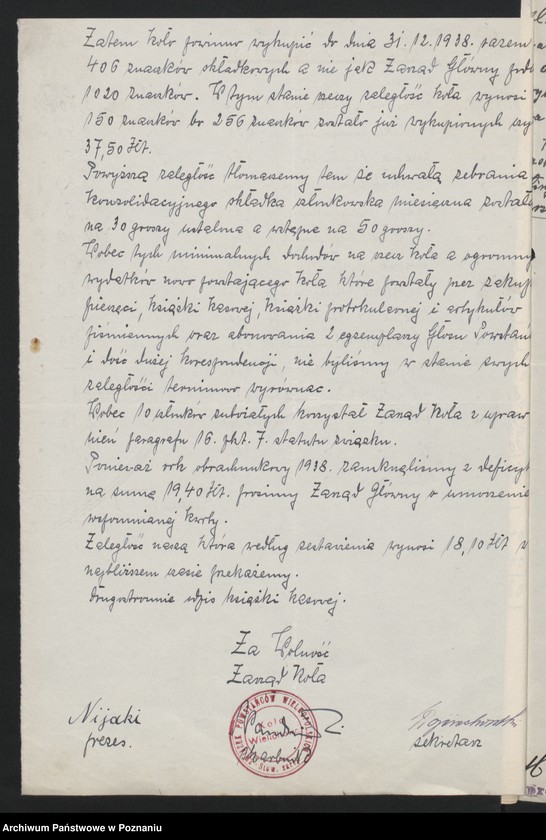 Zatem koło powinno wykupić do dnia 31.12.1938. razem
406 znaczków składkowych a nie jak Zarząd Główny
1020 znaczków. W tym stanie rzeczy zaległość koła wynosi
150 znaczków bo 256 znaczków zostało już wykupionych
37,50 zł.
Powyższą zaległość tłomaczemy tem że uchwałą zebrania
konsolidacyjnego składka członkowska miesięczna została
na 30 groszy ustalona a wstępne na 50 groszy.
Wobec tych minimalnych dochodów na rzecz koła a ogromnych
wydatków nowo powstającego koła które powstały przez zakup
pieczęci, książki kasowej, książki protokularnej i artykułów
piśmiennych oraz abonowania 2 egzemplarzy Głosu Powstań
i dość dużej korespondencji, nie byliśmy w stanie swych
zaległości terminowo wyrównac.
Wobec 10 członków zubożałych korzystał Zarząd Koła z upraw
nień paragrafu 16. pkt. 7. statutu związku.
Ponieważ rok obrachunkowy 1938. zamknęliśmy z deficyt
na sumę 19,40 zł. prosimy Zarząd Główny o umorzenie
wspomnianej kwoty.
Zaległość naszą która według zestawienia wynosi 18,10 zł w
najbliższem czasie przekażemy.
Drugostronnie odpis książki kasowej.
Za Wolność
Zarząd Koła
Nijaki
prezes.
POWSTAŃCÓW WIELKOPOLSKICH
Koło
skarbnik
sekretarz
Archiwum Państwowe w Poznaniu